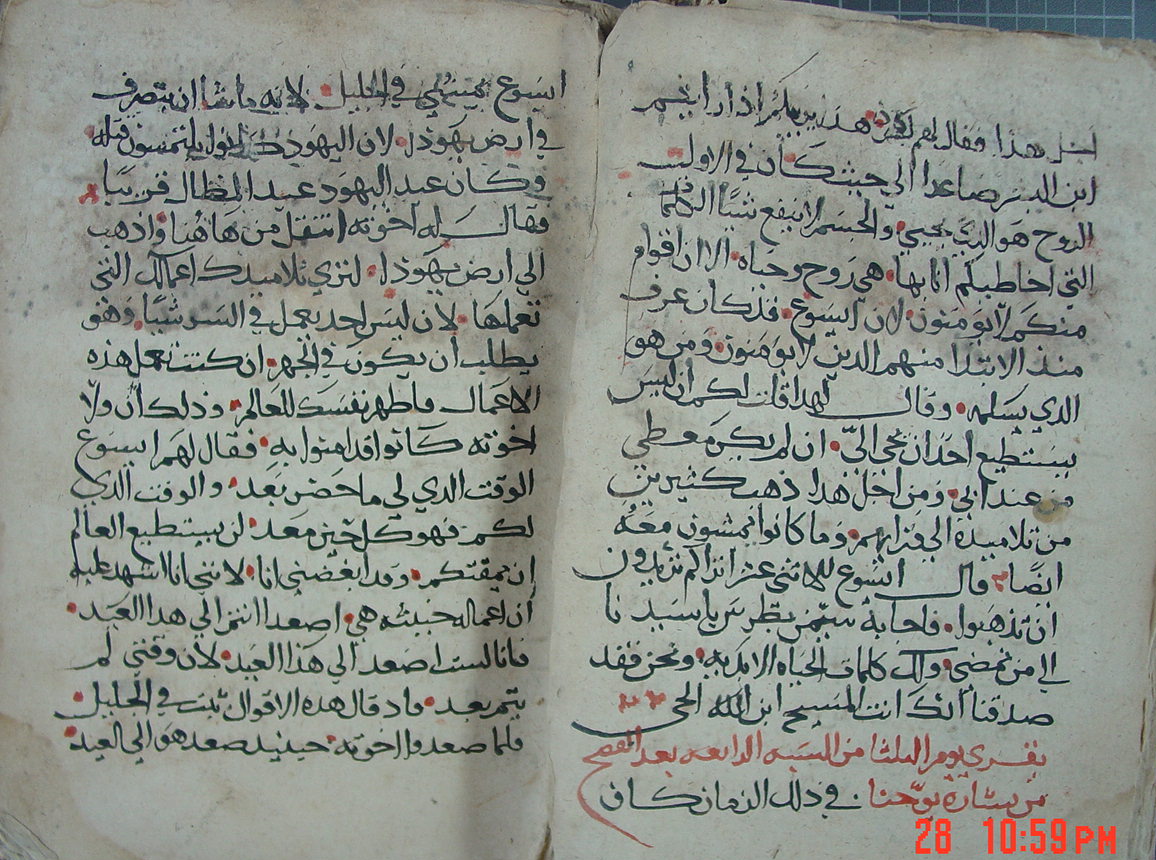 اجل هذا فقال لهم هذا يريبكم اذا رايتم
ابن البشر صاعدا الي حيث كان في الاول
الروح هو الذي يحيي والجسم لا ينفع شيا الكلام
التي اخاطبكم انا بها هي روح وحياه الا ان اقوام
منكم لا يومنون لان ايسوع قد كان عرف
منذ الابتدا منهم الذين لا يومنون ومن هو
الذي يسلمه وقال لهذا قلت لكم ان ليس
يستطيع احدا ان يجي اليّ ان لم يكن معطي
من عند ابي ومن اجل هذا ذهب كثيرين
من تلاميذه الي وراهم وما كانوا يمشون معه
ايضا قال ايسوع للاثني عشر انتم تريدون
ان تذهبوا فاجابه سمعن بطرس يا سيدنا
الي من نمضي ولك كلمات الحياه الابديه ونحن فقد
صدقنا انك انت المسيح ابن الله الحي
يقري يوم الثلثا من السبه الرابعه بعد الفصح
من بشارة يوحنا في ذلك الزمان كان
ايسوع يمشي في الجليل لانه ما شا ان يتصرف
في ارض يهوذا لان اليهود كانوا يلتمسون قتله
وكان عيد اليهود عيد المظال قريبا
فقال له اخوته انتقل من هاهنا واذهب
الي ارض يهوذا لتري تلاميذك اعمالك التي
تعملها لان ليس احد يعمل في السر شيا وهو
يطلب ان يكون في الجهر ان كنت تعمل هذه
الاعمال فاظهر نفسك للعالم وذلك ان ولا
اخوته كانوا امنوا به فقال لهم ايسوع
الوقت الذي لي ما حضر بعد والوقت الذي
لكم فهو كل حين معد لن يستطيع العالم
ان يمقتكم وقد ابغضني انا لانني انا اشهد عليه
ان اعماله خبيثه هي اصعدوا انتم الي هذا العيد
فانا لست اصعد الي هذا العيد لان وقتي لم
يتم بعد فاذ قال هذه الاقوال ثبت في الجليل
فلما صعدوا اخوته حينيذ صعد هو الي العيد
28 10:59 PM